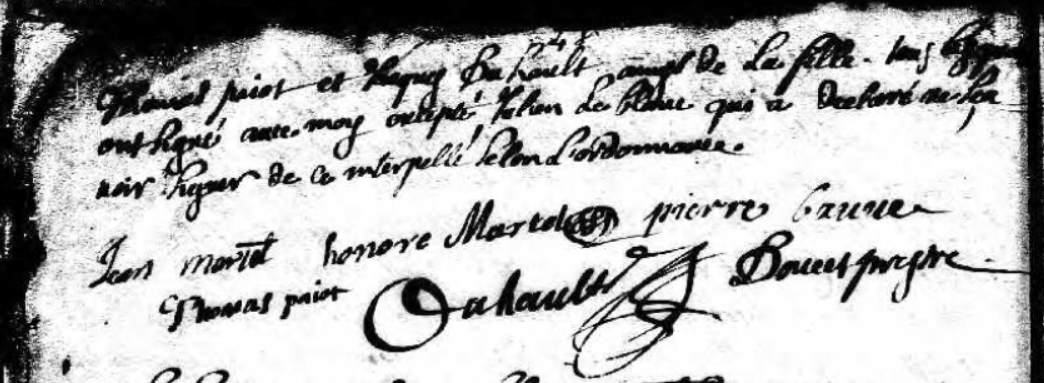 Thomas paiot et Dahault amys de La fille. tous lesquels
ont signé avec moy excepté Julien Le blanc qui a declaré ne sca
voir signer de ce interpellé selon L'ordonnance.
Jean martel honore Martel pierre brune
Thomas paiot Dahault Doucet prestre